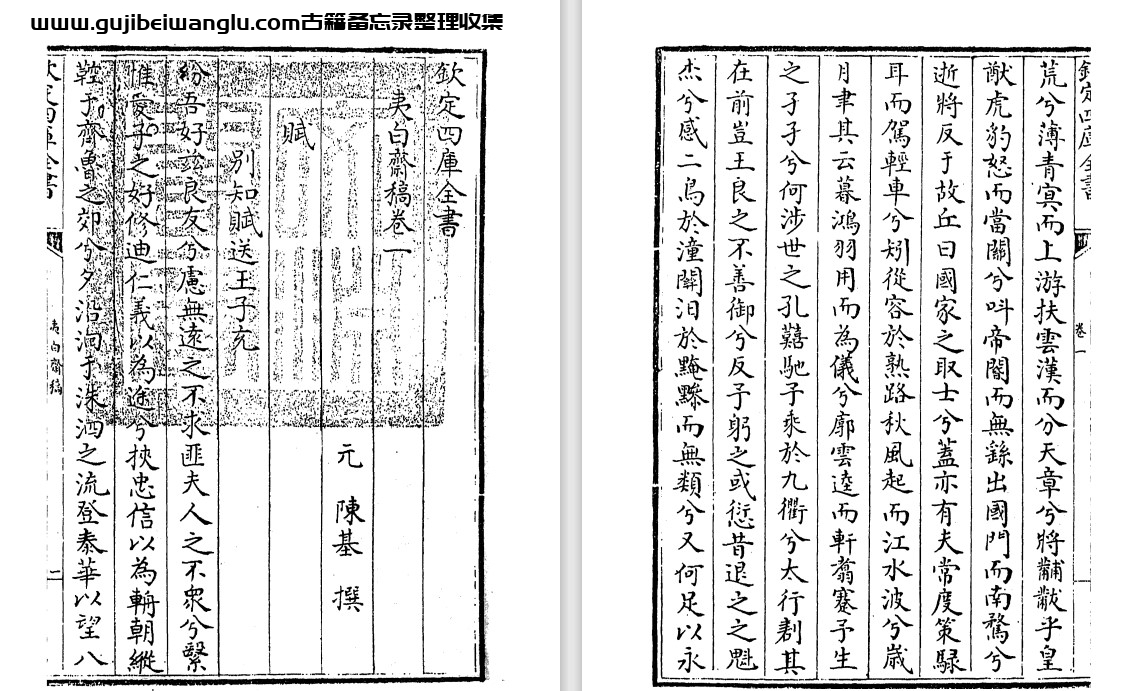 www.gujibeiwanglu.com古籍备忘录整理收集
欽定四庫全書
夷白齋稿卷一
元 陳基 撰
賦
別知賦送王子充
紛吾好兹良友兮慮無遠之不求匪夫人之不衆兮繄
惟子之好修迪仁義以為途兮挾忠信以為輈朝縱
鞚于齊魯之郊兮夕沿洄于洙泗之流登泰華以望八
欽定四庫全書 夷白齋稿 一
欽定四庫全書 卷一
荒兮薄青㝠而上游扶雲漢而分天章兮將黼黻乎皇
猷虎豹怒而當關兮呌帝閽而無繇出國門而南騖兮
逝將反于故丘曰國家之取士兮蓋亦有夫常度策騄
耳而駕輕車兮矧從容於熟路秋風起而江水波兮歲
月聿其云暮鴻羽用而為儀兮廓雲逵而軒翥蹇予生
之孑孑兮何涉世之孔囏馳予乘於九衢兮太行其
在前豈王良之不善御兮反予躬之或愆昔退之之魁
杰兮感二鳥於潼關汨於黤黲而無類兮又何足以永